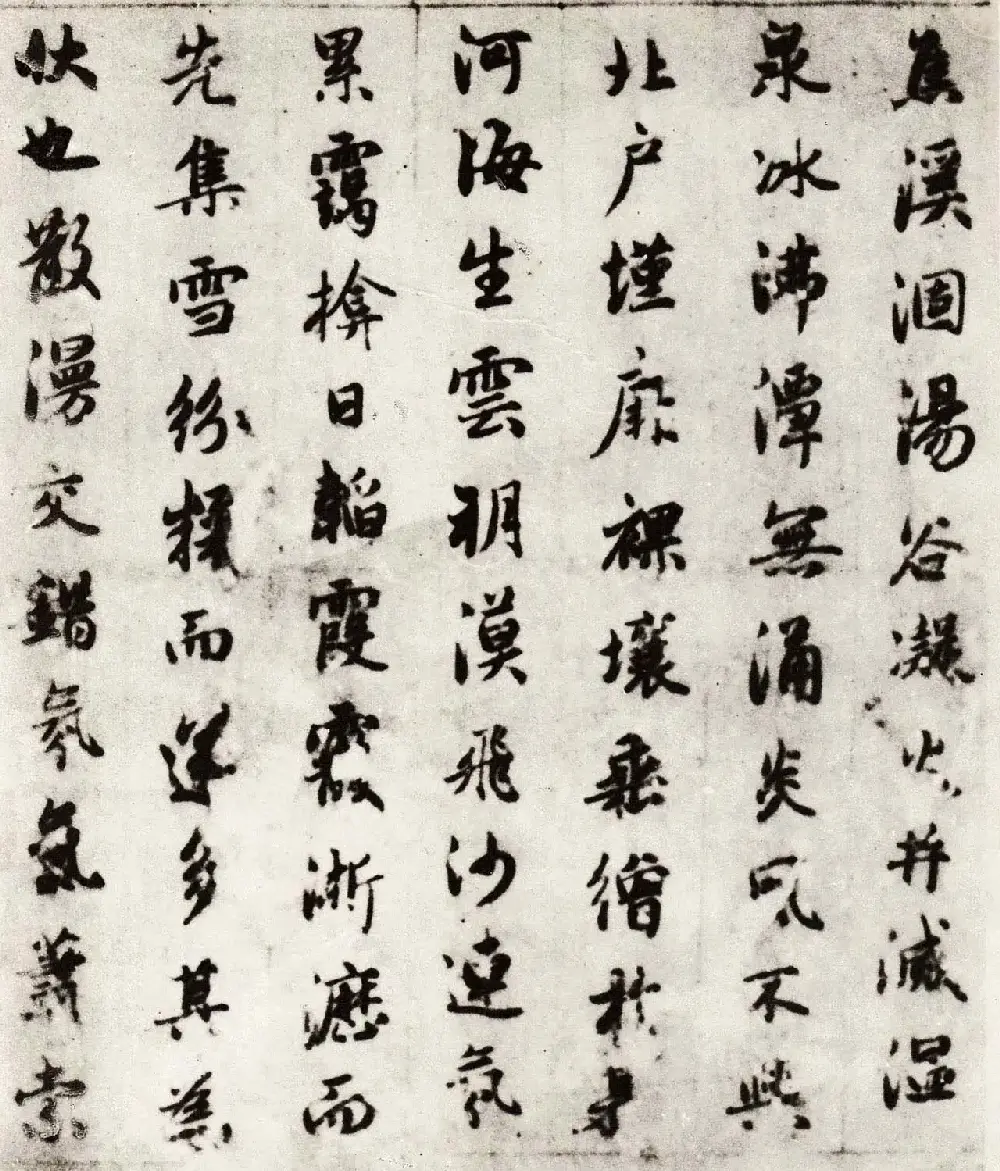 焦溪涸湯谷凝火井滅温
泉冰沸潭無涌炎風不興
北户墐扉裸壤垂繒於是
河海生雲朔漠飛沙連氛
累靄揜日韜霞霰淅瀝而
先集雪紛糅而遂多其為
狀也散漫交錯氛氳蕭索